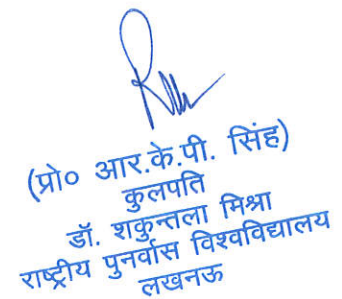 (प्रो० आर.के.पी. सिंह)
कुलपति
डॉ. शकुन्तला मिश्रा
राष्ट्रीय पुनर्वास विश्वविद्यालय
लखनऊ